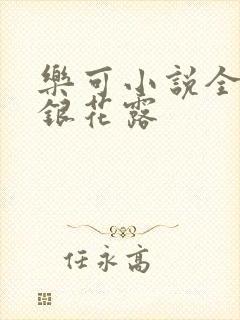 樂可小說全
銀花露
任永高